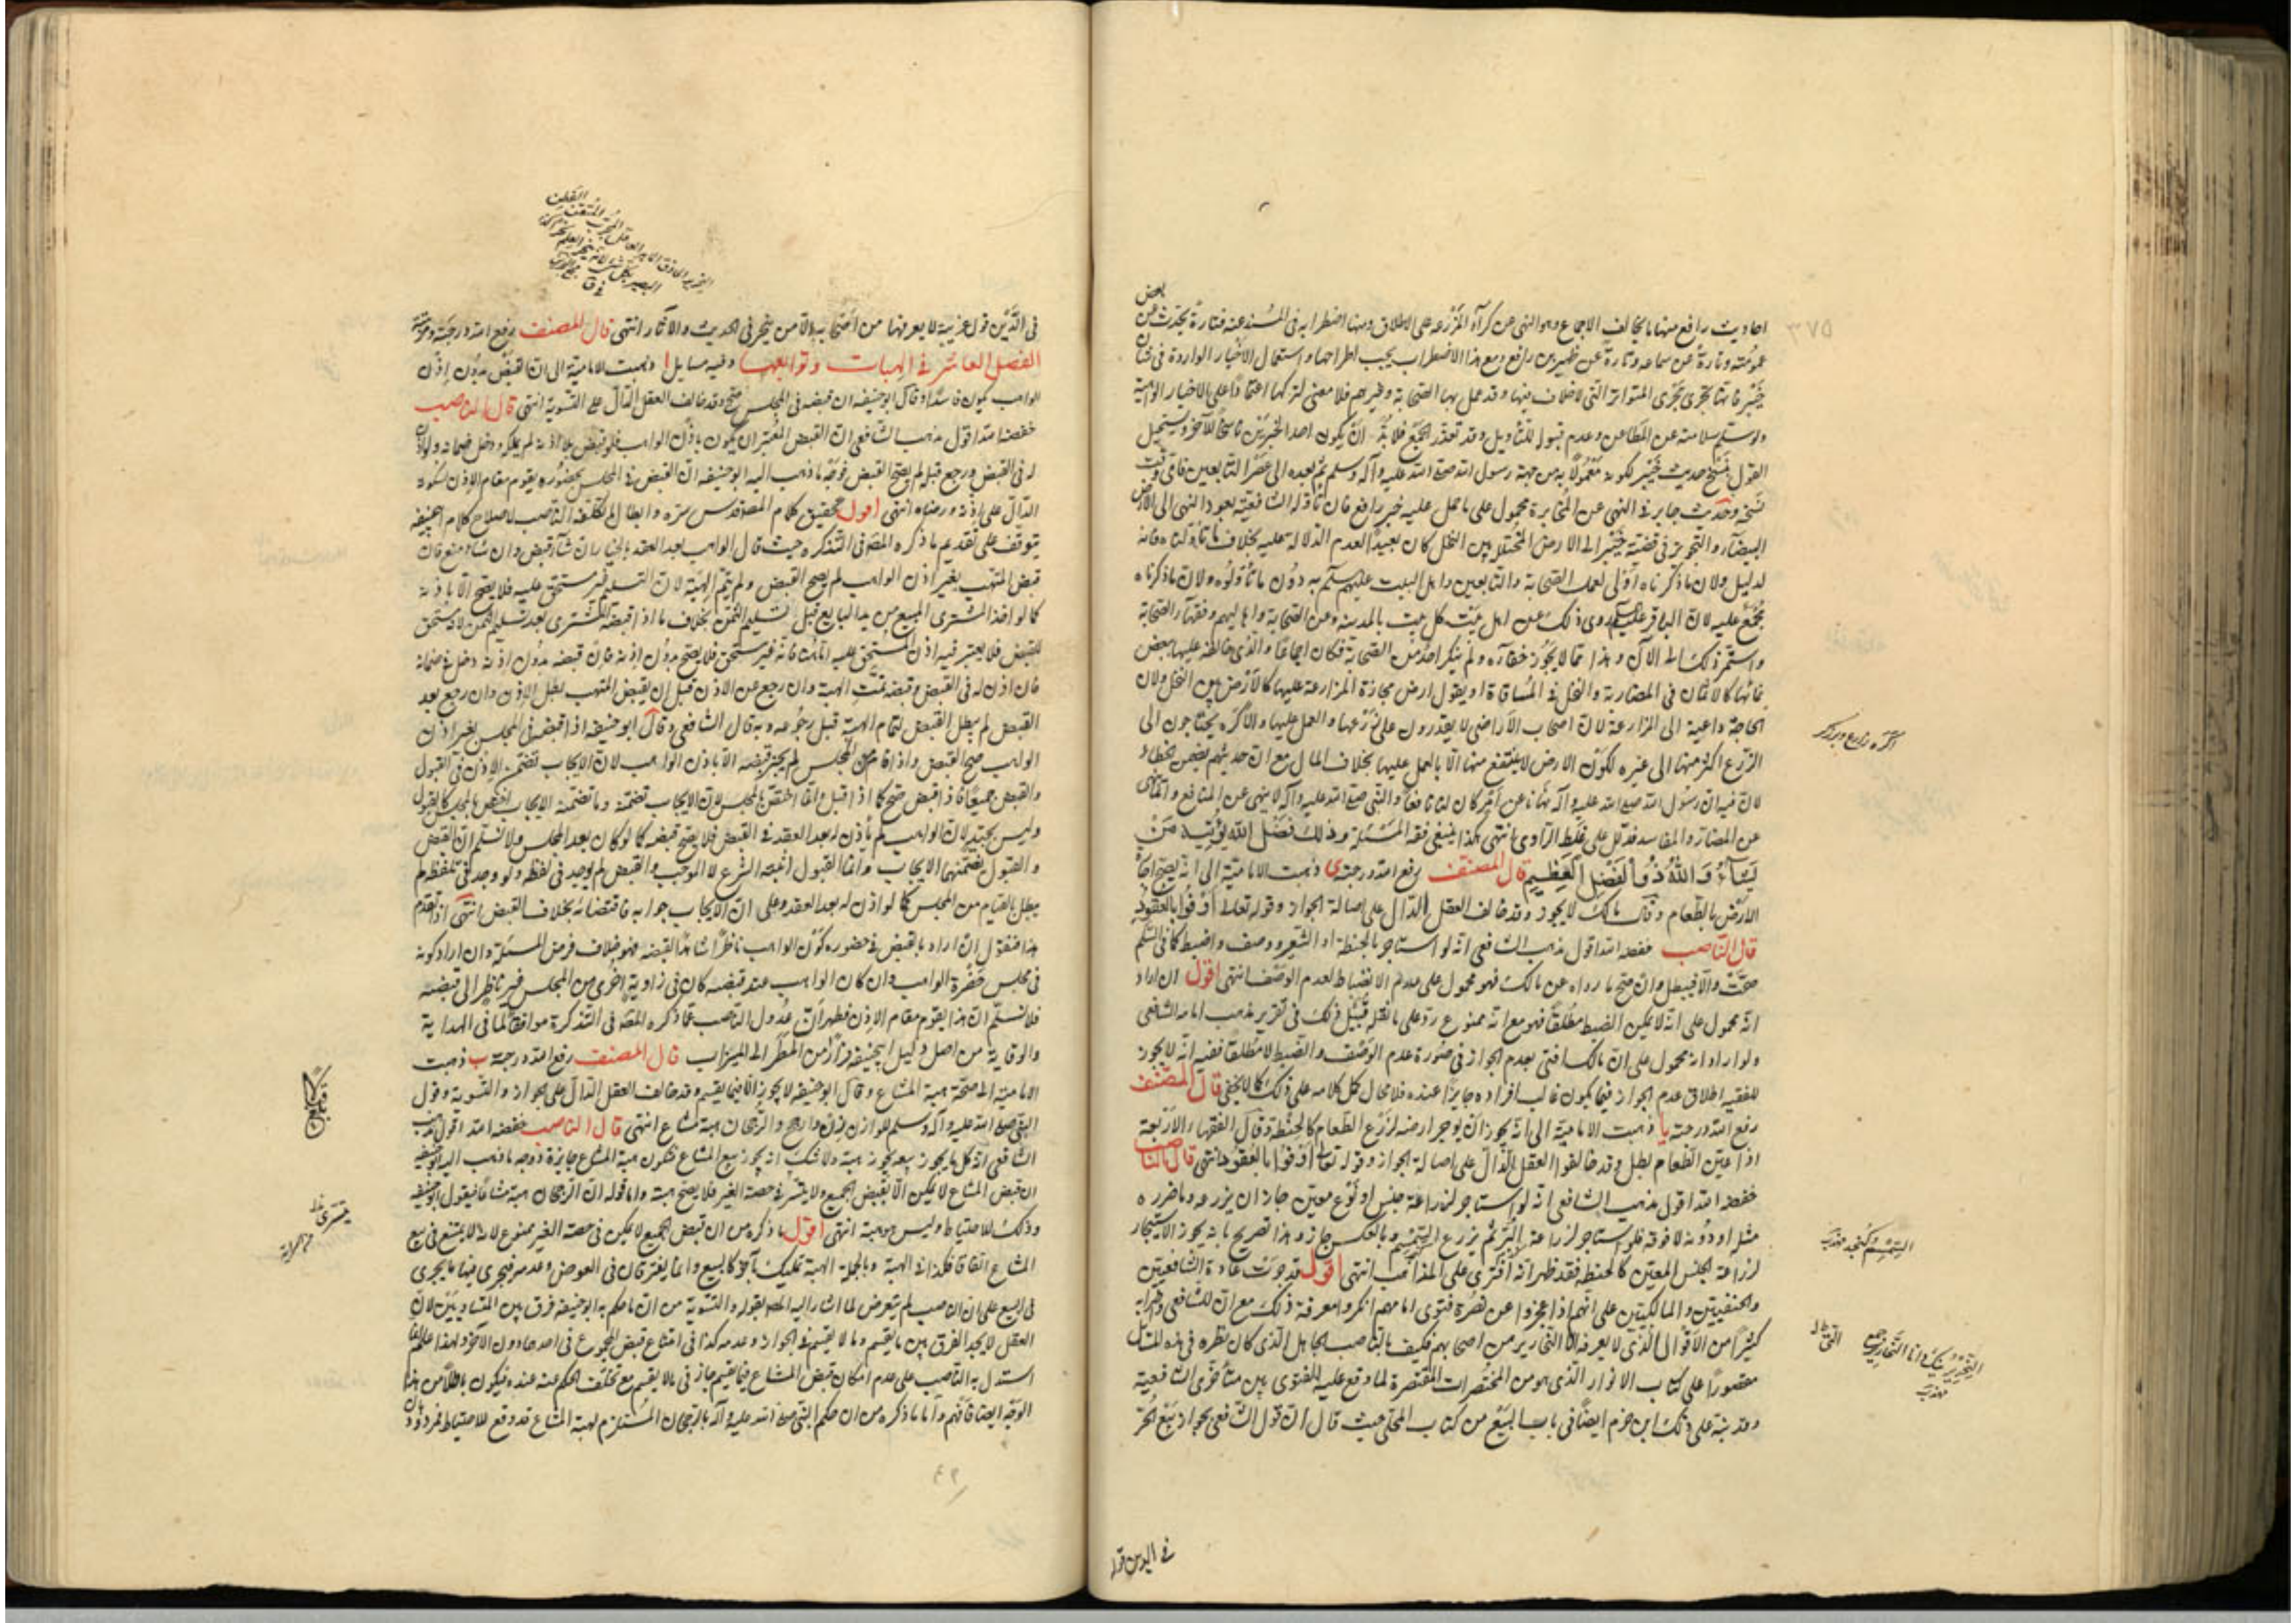 بعض
احاديث رافع منها ما يخالف الاجماع وهو النهى عن كرآء المزرعة على الاطلاق ومنها اضطرابه فى المسند عنه فتارة يحدث عن
عمومته وتارة عن سماعه وتارة عن ظهير بن رافع ومع هذا الاضطراب يجب اطراحها واستعمال الاخبار الواردة فى شان
خيبر فانها تجرى مجرى المتواترة التى لا خلاف فيها وقد عمل بها الصحابة وغيرهم فلا معنى لتركها اعتمادا على الاخبار الواهية
ولو سلم سلامته عن المطاعن وعدم قبول للتأويل وقد تعذر الجمع فلا بد ان يكون احد الخبرين ناسخا للآخر ويستحيل
القول بنسخ حديث خيبر لكونه معمولا به من جهة رسول الله صلى الله عليه وآله وسلم ثم بعده الى عصر التابعين فاى وقت
نسخه وحديث جابر فى النهى عن المخابرة محمول على ما حمل عليه خبر رافع فان تأوله الشافعية بعود النهى الى الارض
البيضآء والتجويز فى قضية خيبر الى الارض المختلة بين النخل كان بعيدا لعدم الدلالة عليه بخلاف ما تأولناه فانه
لدليل ولان ما ذكرناه اولى لعمل الصحابة والتابعين واهل البيت عليهم السلم به دون ما تأولوه ولان ما ذكرناه
مجمع عليه لان الباقر عليه السلم روى ذلك عن اهل بيت كل بيت بالمدينة وعن الصحابة واهاليهم وفقهآء الصحابة
واستمر ذلك الى الآن وهذا مما لا يجوز خفآءه ولم ينكر احد من الصحابة فكان اجماعا والذى خالطه عليها بعض
نمائها كالاثمان فى المضاربة والنخل فى المساقاة او يقول ارض مجازة المزارعة عليها كالارض بين النخل ولان
الحاجة داعية الى المزارعة لان اصحاب الاراضى لا يقدرون على زرعها والعمل عليها والاكرة يحتاجون الى
الزرع اكثر منها الى غيره لكون الارض لا ينتفع منها الا بالعمل عليها بخلاف المال مع ان حديثهم يضمن الخطاء
لان فيه ان رسول الله صلى الله عليه وآله نهانا عن امر كان لنا نافعا والنبى صلى الله عليه وآله لا ينهى عن المنافع وانما ينهى
عن المضار والمفاسد فدل على غلط الراوى انتهى هكذا ينبغى فقه المسئلة وذلك فضل الله يؤتيه من
يشآء والله ذو الفضل العظيم قال المصنف رفع الله درجته ى ذهبت الامامية الى انه يصح اجارة
الارض بالطعام وقال مالك لا يجوز وقد خالف العقل الدال على اصالة الجواز وقوله تعالى اوفوا بالعقود
قال الناصب خفضه الله اقول مذهب الشافعى انه لو استاجر بالحنطة او الشعير ووصف واضبط كما فى السلم
صحت والا فيبطل وان صح ما رواه عن مالك فهو محمول على عدم الانضباط لعدم الوصف انتهى اقول ان اراد
انه محمول على انه لا يمكن الضبط مطلقا فهو مع انه ممنوع رد على ما نقله قبيل ذلك فى تقرير مذهب امامه الشافعى
ولو اراد انه محمول على ان مالكا افتى بعدم الجواز فى صورة عدم الوصف والضبط لا مطلقا ففيه انه لا يجوز
للفقيه اطلاق عدم الجواز فيما يكون غالب افراده جايزا عنده فلا مجال لحمل كلامه على ذلك كما لا يخفى قال المصنف
رفع الله درجته يا ذهبت الامامية الى انه يجوز ان يوجر ارضه لزرع الطعام كالحنطة وقال الفقهاء الاربعة
اذا عين الطعام بطل وقد خالفوا العقل الدال على اصالة الجواز وقوله تعالى اوفوا بالعقود انتهى قال الناصب
خفضه الله اقول مذهب الشافعى انه لو استاجر لزراعة جنس او نوع معين جاز ان يزرعه وما ضرره
مثله او دونه لا فوقه فلو استاجر لزراعة البر ثم يزرع السمسم وبالعكس جاز وهذا تصريح بانه يجوز الاستيجار
لزراعة الجنس المعين كالحنطة فقد ظهر انه افترى على المذاهب انتهى اقول قد جرت عادة الشافعيين
والحنفيين والمالكيين على انهم اذا عجزوا عن نصرة فتوى امامهم انكروا معرفة ذلك مع ان للشافعى وغيره
كثيرا من الاقوال الذى لا يعرفه الا النحارير من اصحابهم فكيف بالناصب الجاهل الذى كان نظره فى هذه المسائل
مقصورا على كتاب الانوار الذى هو من المختصرات المقتصرة لما وقع عليه الفتوى بين متأخرى الشافعية
وقد نبه على ذلك ابن حزم ايضا فى باب البيع من كتاب المحلى حيث قال ان قول الشافعى بجواز بيع الحر
٥٧٣
اكره زارع وبرزكر
السمسم كنجد مهذب
النحرير نيك دانا النحارير جمع
مهذب
فى الدين قوله
فى الدين قول غريبة لا يعرفها من اصحابه الا من تبحر فى الحديث والآثار انتهى قال المصنف رفع الله درجته ومرتبته
الفصل العاشر فى الهبات وتوابعها وفيه مسايل ا ذهبت الامامية الى ان القبض بدون اذن
الواهب يكون فاسدا وقال ابو حنيفة ان قبضه فى المجلس صح وقد خالف العقل الدال على التسوية انتهى قال الناصب
خفضه الله اقول مذهب الشافعى ان القبض المعتبر ان يكون باذن الواهب فلو قبض بلا اذنه لم يملكه ودخل ضمانه ولو اذن
له فى القبض ورجع قبله لم يصح القبض فوجه ما ذهب اليه ابو حنيفة ان القبض فى المجلس بحضوره يقوم مقام الاذن لسكوته
الدال على اذنه ورضاه انتهى اقول تحقيق كلام المصنف قدس سره وابطال ما تكلفه الناصب لاصلاح كلام ابى حنيفة
يتوقف على تقديم ما ذكره المصه فى التذكرة حيث قال الواهب بعد العقد بالخيار ان شآء قبض وان شاء منع فان
قبض المتهب بغير اذن الواهب لم يصح القبض ولم يتم الهبة لان التسليم غير مستحق عليه فلا يصح الا باذنه
كما لو اخذ المشترى المبيع من يد البايع قبل تسليم الثمن بخلاف ما اذا قبضه المشترى بعد تسليم الثمن لانه مستحق
للقبض فلا يعتبر فيه اذن المستحق عليه اما هنا فانه غير مستحق فلا يصح بدون اذنه فان قبضه بدون اذنه دخل فى ضمانه
فان اذن له فى القبض وقبضه تمت الهبة وان رجع عن الاذن قبل ان يقبض المتهب بطل الاذن وان رجع بعد
القبض لم يبطل القبض لتمام الهبة قبل رجوعه وبه قال الشافعى وقال ابو حنيفة اذا قبضه فى المجلس بغير اذن
الواهب صح القبض واذا قام من المجلس لم يجز قبضه الا باذن الواهب لان الايجاب تضمن الاذن فى القبول
والقبض جميعا فاذا قبض صح كما اذا قبل وانما اختص بالمجلس لان الايجاب تضمنه وما تضمنه الايجاب اختص بالمجلس كالقبول
وليس بجيد لان الواهب لم يأذن له بعد العقد فى القبض فلا يصح قبضه كما لو كان بعد المجلس ولا نسلم ان القبض
والقبول تضمنهما الايجاب وانما القبول اثبته الشرع لا الموجب والقبض لم يوجد فى لفظه ولو وجد فى لفظه لم
يبطل بالقيام من المجلس كما لو اذن له بعد العقد وعلى ان الايجاب جوابه فاقتضائه بخلاف القبض انتهى اذا تقدم
هذا فنقول ان اراد بالقبض فى حضوره كون الواهب ناظرا شاهدا لقبضه فهو خلاف فرض المسئلة وان اراد كونه
فى مجلس حضرة الواهب وان كان الواهب عند قبضه كان فى زاوية اخرى من المجلس غير ناظر الى قبضه
فلا نسلم ان هذا يقوم مقام الاذن فظهر ان عدول الناصب عما ذكره المصه فى التذكرة موافقا لما فى الهداية
والوقاية من اصل دليل ابى حنيفة فرارا من المطر الى الميزاب قال المصنف رفع الله درجته ب ذهبت
الامامية الى صحة هبة المشاع وقال ابو حنيفة لا يجوز الا فيما يقسم وقد خالف العقل الدال على الجواز والتسوية وقول
النبى صلى الله عليه وآله وسلم للوازن زن وارجح والرجحان هبة مشاع انتهى قال الناصب خفضه الله اقول مذهب
الشافعى ان كل ما يجوز بيعه يجوز هبته ولا شك انه يجوز بيع المشاع فتكون هبة المشاع جايزة ووجه ما ذهب اليه ابو حنيفة
ان قبض المشاع لا يمكن الا بقبض الجميع ولا يتيسر فى حصة الغير فلا يصح هبته واما قوله ان الرجحان هبة مشاع فيقول ابو حنيفة
وذلك للاحتياط وليس هو هبة انتهى اقول ما ذكره من ان قبض الجميع لا يمكن فى حصة الغير ممنوع لانه لا يمتنع فى بيع
المشاع اتفاقا فكذا فى الهبة وبالجملة الهبة تمليك آخر كالبيع وانما يفترقان فى العوض وعدمه فيجرى فيها ما يجرى
فى البيع على ان الناصب لم يتعرض لما اشار اليه المصه بقوله والتسوية من ان ما حكم به ابو حنيفة فرق بين المتساويين لان
العقل لا يجد الفرق بين ما يقسم وما لا يقسم فى الجواز وعدمه كذا فى امتناع قبض المجموع فى احدهما دون الآخر
استدل به الناصب على عدم امكان قبض المشاع فيما يقسم جاز فى ما لا يقسم مع تخلف الحكم عنه عنده فيكون باطلا من هذا
الوجه ايضا فافهم واما ما ذكره من ان حكم النبى صلى الله عليه وآله بالرجحان المستلزم لهبة المشاع قد وقع للاحتياط فمردود بان